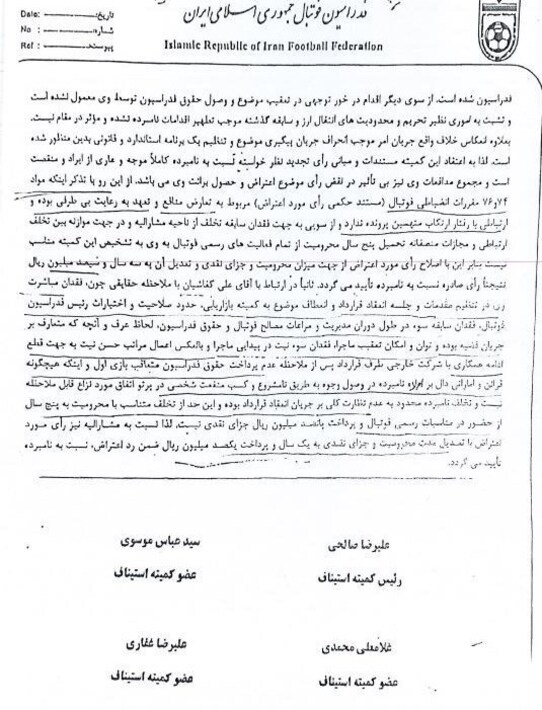 فدراسیون فوتبال جمهوری اسلامی ایران
Islamic Republic of Iran Football Federation
Date: تاریخ:
No : شماره:
Ref : پیوست:
فدراسیون شده است. از سوی دیگر اقدام در خور توجهی در تعقیب موضوع و وصول حقوق فدراسیون توسط وی معمول نشده است
و تشبث به اموری نظیر تحریم و محدودیت های انتقال ارز و سابقه گذشته موجب تطهیر اقدامات نامبرده نشده و مؤثر در مقام نیست.
بعلاوه انعکاس خلاف واقع جریان امر موجب انحراف جریان پیگیری موضوع و تنظیم یک برنامه استاندارد و قانونی بدین منظور شده
است. لذا به اعتقاد این کمیته مستندات و مبانی رأی تجدید نظر خواسته نسبت به نامبرده کاملاً موجه و عاری از ایراد و منقصت
است و مجموع مدافعات وی نیز بی تأثیر در نقض رأی موضوع اعتراض و حصول برائت وی می باشد. از این رو با تذکر اینکه مواد
۷۴و۷۶ مقررات انضباطی فوتبال (مستند حکمی رأی مورد اعتراض) مربوط به تعارض منافع و تعهد به رعایت بی طرفی بوده و
ارتباطی با رفتار ارتکاب متهمین پرونده ندارد و از سویی به جهت فقدان سابقه تخلف از ناحیه مشارالیه و در جهت موازنه بین تخلف
ارتباطی و مجازات منصفانه تحمیل پنج سال محرومیت از تمام فعالیت های رسمی فوتبال به وی به تشخیص این کمیته مناسب
نیست بنابر این با اصلاح رأی مورد اعتراض از جهت میزان محرومیت و جزای نقدی و تعدیل آن به سه سال و سیصد میلیون ریال
نتیجتاً رأی صادره نسبت به نامبرده تأیید می گردد. ثانیاً در ارتباط با آقای علی کفاشیان با ملاحظه حقایقی چون، فقدان مباشرت
وی در تنظیم مقدمات و جلسه انعقاد قرارداد و انعطاف موضوع به کمیته بازاریابی، حدود صلاحیت و اختیارات رئیس فدراسیون
فوتبال، فقدان سابقه سوء در طول دوران مدیریت و مراعات مصالح فوتبال و حقوق فدراسیون، لحاظ عرف و آنچه که متعارف بر
جریان قضیه بوده و توان و امکان تعقیب ماجرا، فقدان سوء نیت در پیدایی ماجرا و بالعکس اعمال مراتب حسن نیت به جهت قطع
ادامه همکاری با شرکت خارجی طرف قرارداد پس از ملاحظه عدم پرداخت حقوق فدراسیون متعاقب بازی اول و اینکه هیچگونه
قرائن و اماراتی دال بر اراده نامبرده در وصول وجوه به طریق نامشروع و کسب منفعت شخصی در پرتو اتفاق مورد نزاع قابل ملاحظه
نیست و تخلف نامبرده محدود به عدم نظارت کلی بر جریان انعقاد قرارداد بوده و این حد از تخلف متناسب با محرومیت به پنج سال
از حضور در مناسبات رسمی فوتبال و پرداخت پانصد میلیون ریال جزای نقدی نیست. لذا نسبت به مشارالیه نیز رأی مورد
اعتراض با تعدیل مدت محرومیت و جزای نقدی به یک سال و پرداخت یکصد میلیون ریال ضمن رد اعتراض، نسبت به نامبرده
تأیید می گردد.
علیرضا صالحی
رئیس کمیته استیناف
سید عباس موسوی
عضو کمیته استیناف
غلامعلی محمدی
عضو کمیته استیناف
علیرضا غفاری
عضو کمیته استیناف